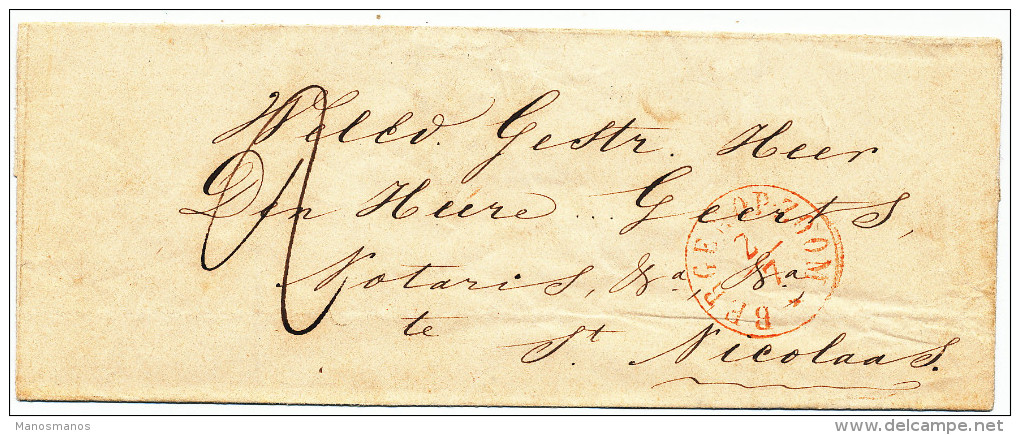 WelEd. Gestr. Heer
Den Heere ... Geerts,
Notaris, &a, &a,
te
St Nicolaas.
BERGEN OP ZOOM
2/7
Manosmanos
delcampe.net